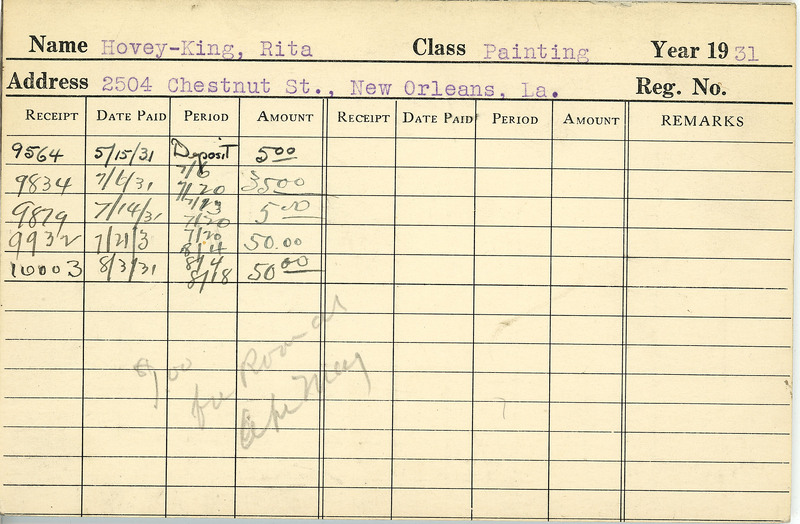 Name Hovey-King, Rita Class Painting Year 1931
Address 2504 Chestnut St., New Orleans, La. Reg. No.
RECEIPT DATE PAID PERIOD AMOUNT RECEIPT DATE PAID PERIOD AMOUNT REMARKS
9564 5/15/31 Deposit 5.00
9834 7/6/31 7/6 7/20 35.00
9879 7/14/31 7/13 7/20 5.00
9932 7/21/3 7/20 8/4 50.00
10003 8/3/31 8/4 8/18 50.00
for Room at